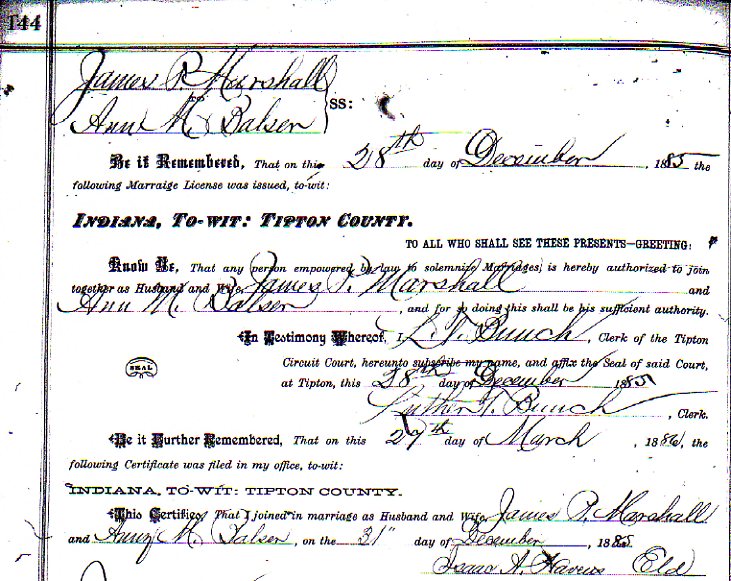 144
James P. Marshall
Ann M. Balser
SS:
Be it Remembered, That on this 28th day of December, 1885 the
following Marraige License was issued, to-wit:
INDIANA, TO-WIT: TIPTON COUNTY.
TO ALL WHO SHALL SEE THESE PRESENTS—GREETING:
Know Ye, That any person empowered by law to solemnize Marriages, is hereby authorized to join
together as Husband and Wife, James P. Marshall and
Ann M. Balser, and for so doing this shall be his sufficient authority.
In Testimony Whereof, I, L. T. Bunch, Clerk of the Tipton
Circuit Court, hereunto subscribe my name, and affix the Seal of said Court,
SEAL
at Tipton, this 28th day of December 1885
Luther T. Bunch, Clerk.
Be it Further Remembered, That on this 27th day of March, 1886, the
following Certificate was filed in my office, to-wit:
INDIANA, TO-WIT: TIPTON COUNTY.
This Certifies, That I joined in marriage as Husband and Wife, James P. Marshall
and M. Balser, on the 31" day of December, 1885
Isaac A. Havens Eld